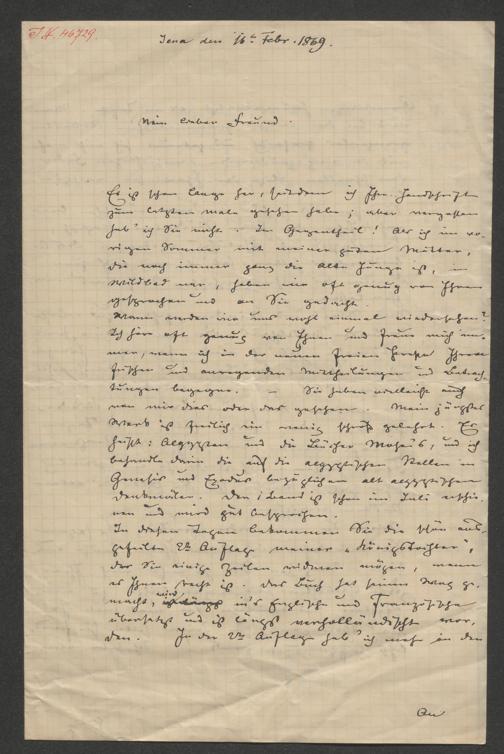 J.N. 46729.
Jena den 16ten Febr. 1869.
Mein lieber Freund.
Es ist schon lange her, seitdem ich Ihre Handschrift
zum letzten male gesehen habe; aber vergessen
hab' ich Sie nicht. Im Gegentheil! Als ich im vo-
rigen Sommer mit meiner guten Mutter,
die noch immer ganz die alte Junge ist, in
Wildbad war, haben wir oft genug von Ihnen
gesprochen und an Sie gedacht.
Wann werden wir uns wohl einmal wiedersehen?
Ich höre oft genug von Ihnen und freue mich im-
mer, wenn ich in der neuen freien Presse Ihren
frischen und anregenden Mittheilungen und Betrach-
tungen begegne. — Sie haben vielleicht auch
von mir dies oder das gesehen. Mein jüngstes
Werk ist freilich ein wenig scharf gelehrt. Es
heisst: Aegypten und die Bücher Mose's, und ich
behandle darin die auf die aegyptischen Stellen in
Genesis und Exodus bezüglichen alt aegyptischen
Denkmäler. Der I Band ist schon im Juli erschie-
nen und wird gut besprochen.
In diesen Tagen bekommen Sie die schön aus-
gefeilte 2te Auflage meiner „Königstochter",
der Sie einige Zeilen widmen mögen, wenn
es Ihnen recht ist. Das Buch hat seinen Weg ge-
macht, wird in's Englische und Französische
übersetzt und ist längst verholländischt wor-
den. In der 2ten Auflage hab' ich mehr in den
An